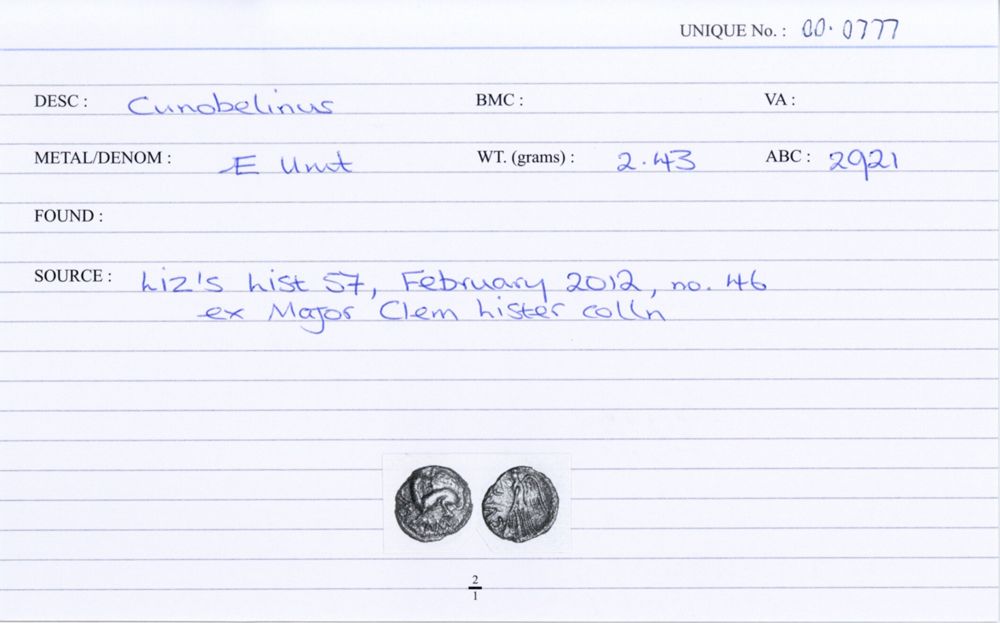 UNIQUE No. : 00.0777
DESC : Cunobelinus BMC : VA :
METAL/DENOM : Æ Unit WT. (grams) : 2.43 ABC : 2921
FOUND :
SOURCE : Liz's List 57, February 2012, no. 46
ex Major Clem Lister colln
2
1